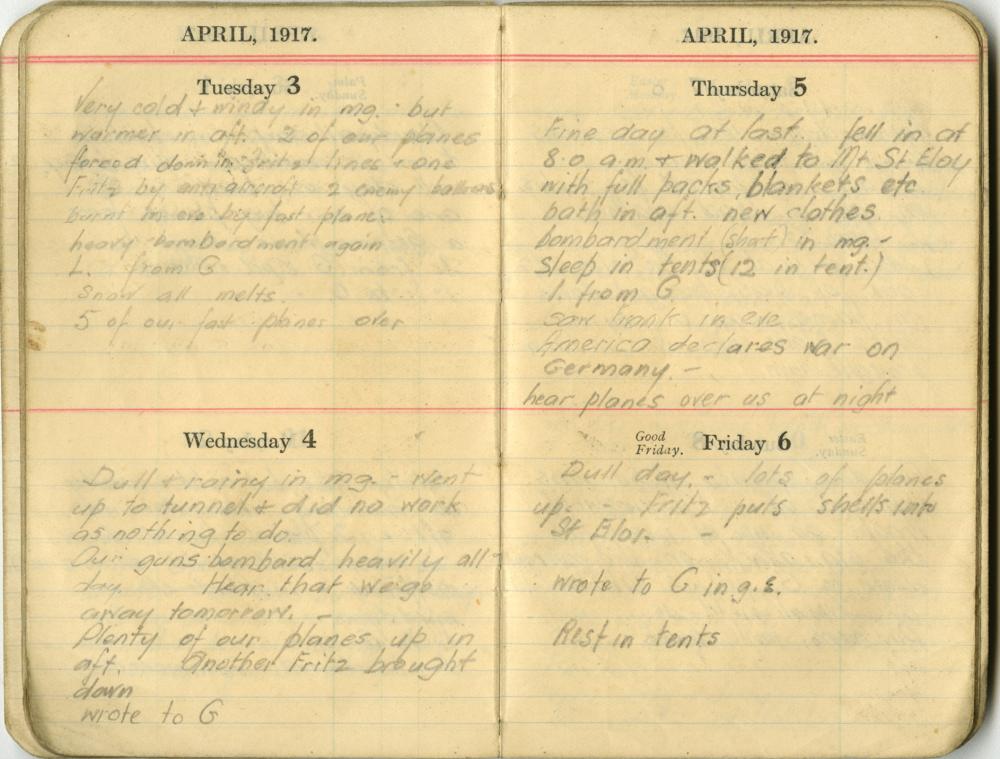 APRIL, 1917.
Tuesday 3
Very cold & windy in mg. but
warmer in aft. 2 of our planes
forced down in Fritz lines & one
Fritz by anti aircraft. 2 enemy balloons
burnt in eve by fast plane.
heavy bombardment again
L. from G
Snow all melts.
5 of our fast planes over
Wednesday 4
Dull & rainy in mg. - went
up to tunnel & did no work
as nothing to do.
Our guns bombard heavily all
day. Hear that we go
away tomorrow. -
Plenty of our planes up in
aft. Another Fritz brought
down
wrote to G
APRIL, 1917.
Thursday 5
Fine day at last. fell in at
8.0 a.m. & walked to Mt St Eloy
with full packs, blankets etc
bath in aft. new clothes.
bombardment (short) in mg. -
Sleep in tents (12 in tent.)
l. from G.
saw Frank in eve
America declares war on
Germany. -
hear planes over us at night
Good Friday. Friday 6
Dull day. - lots of planes
up. - Fritz puts shells into
St Eloi. -
wrote to G in g.e.
Rest in tents